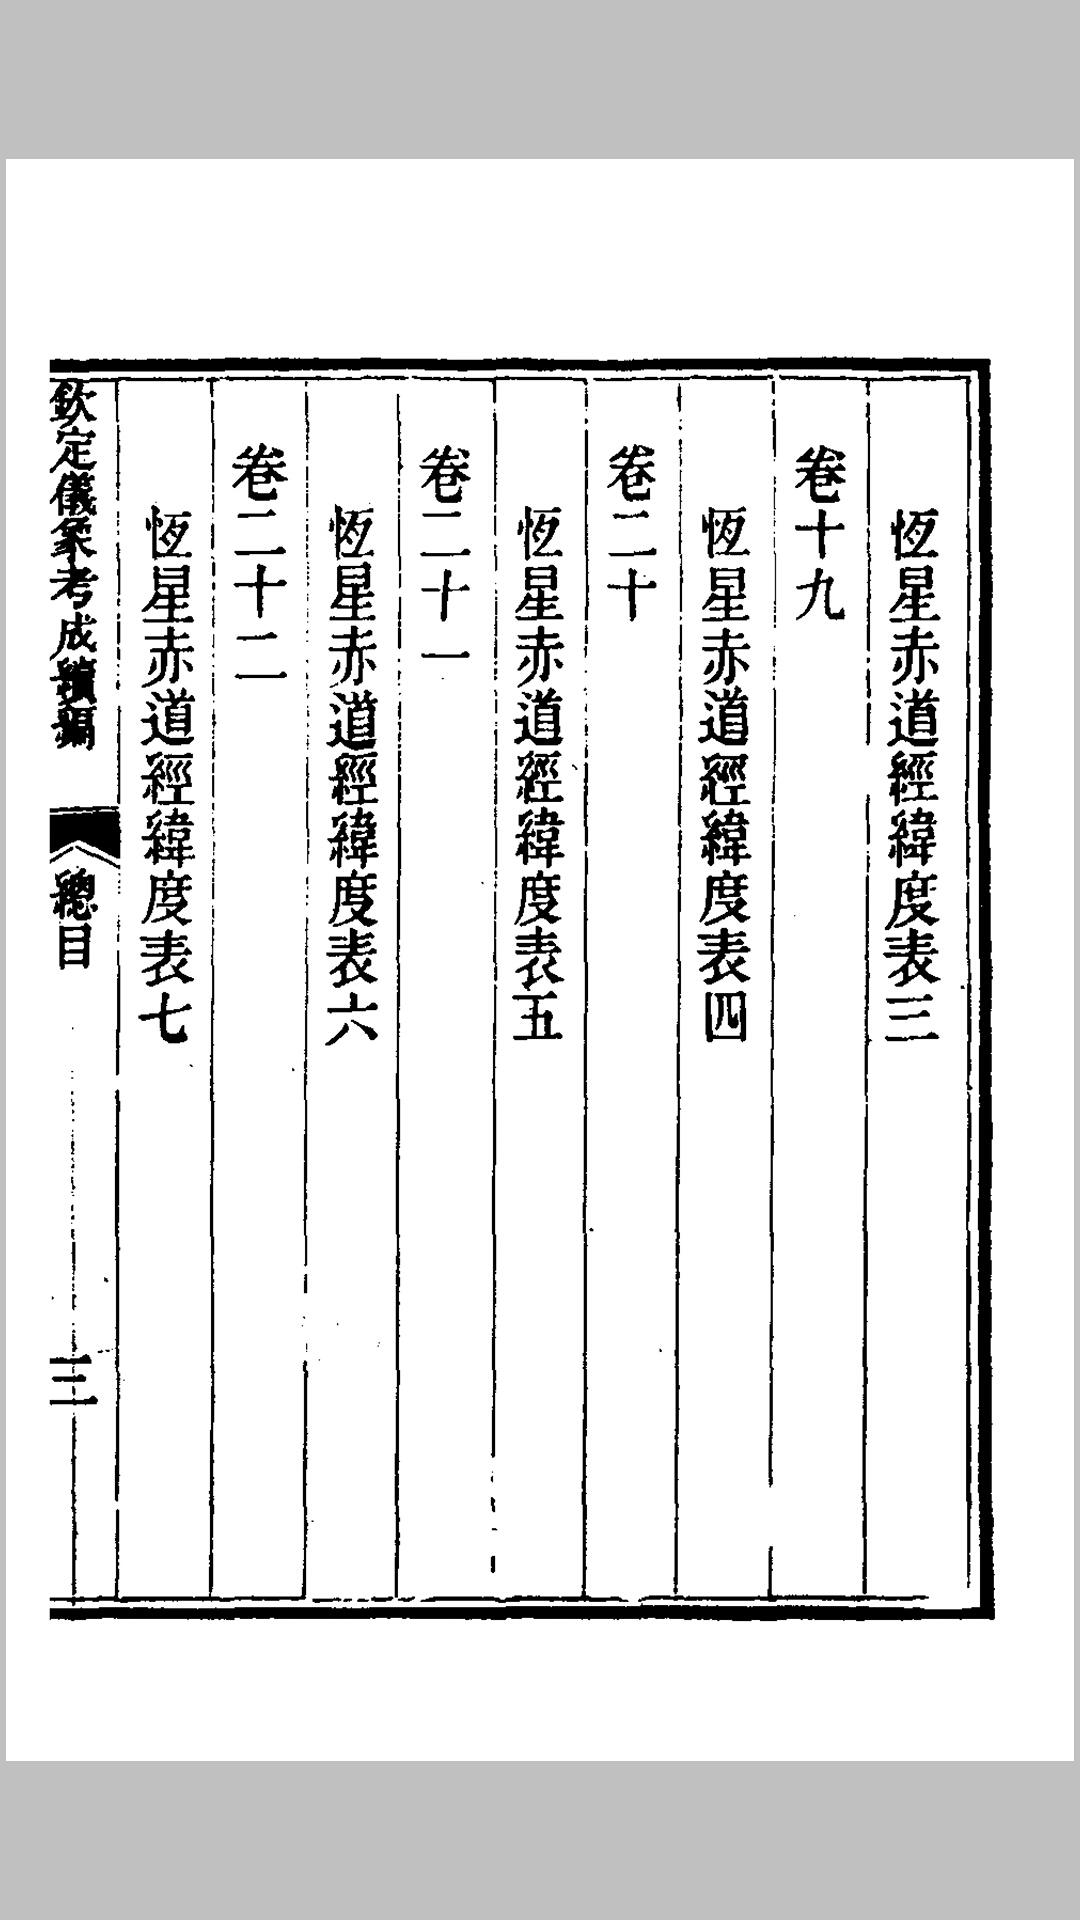 恆星赤道經緯度表三
卷十九
恆星赤道經緯度表四
卷二十
恆星赤道經緯度表五
卷二十一
恆星赤道經緯度表六
卷二十二
恆星赤道經緯度表七
欽定儀象考成續編
總目
三